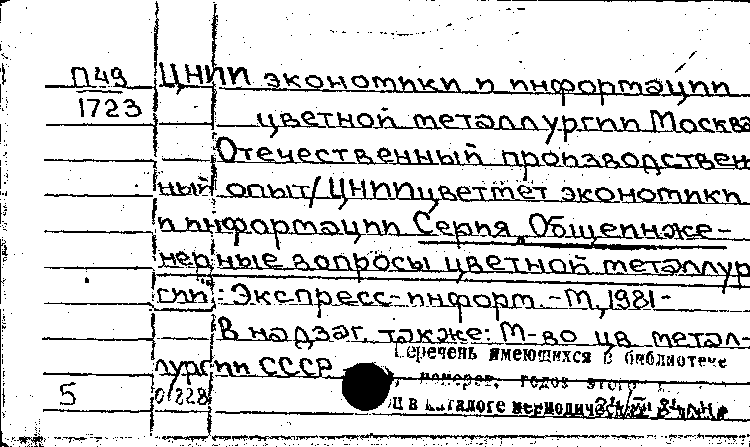 П49 ЦНИИ экономики и информации
1723 цветной металлургии Москва
Отечественный производствен
ный опыт/ЦНИИцветмет экономики
и информации Серия „Общеинже-
нерные вопросы цветной металлур
гии": Экспресс-информ. - М, 1981-
В надзаг. также: М-во цв. метал-
лургии СССР
Перечень имеющихся в библиотеке
номеров, годов этого
5 01228 в каталоге периодич